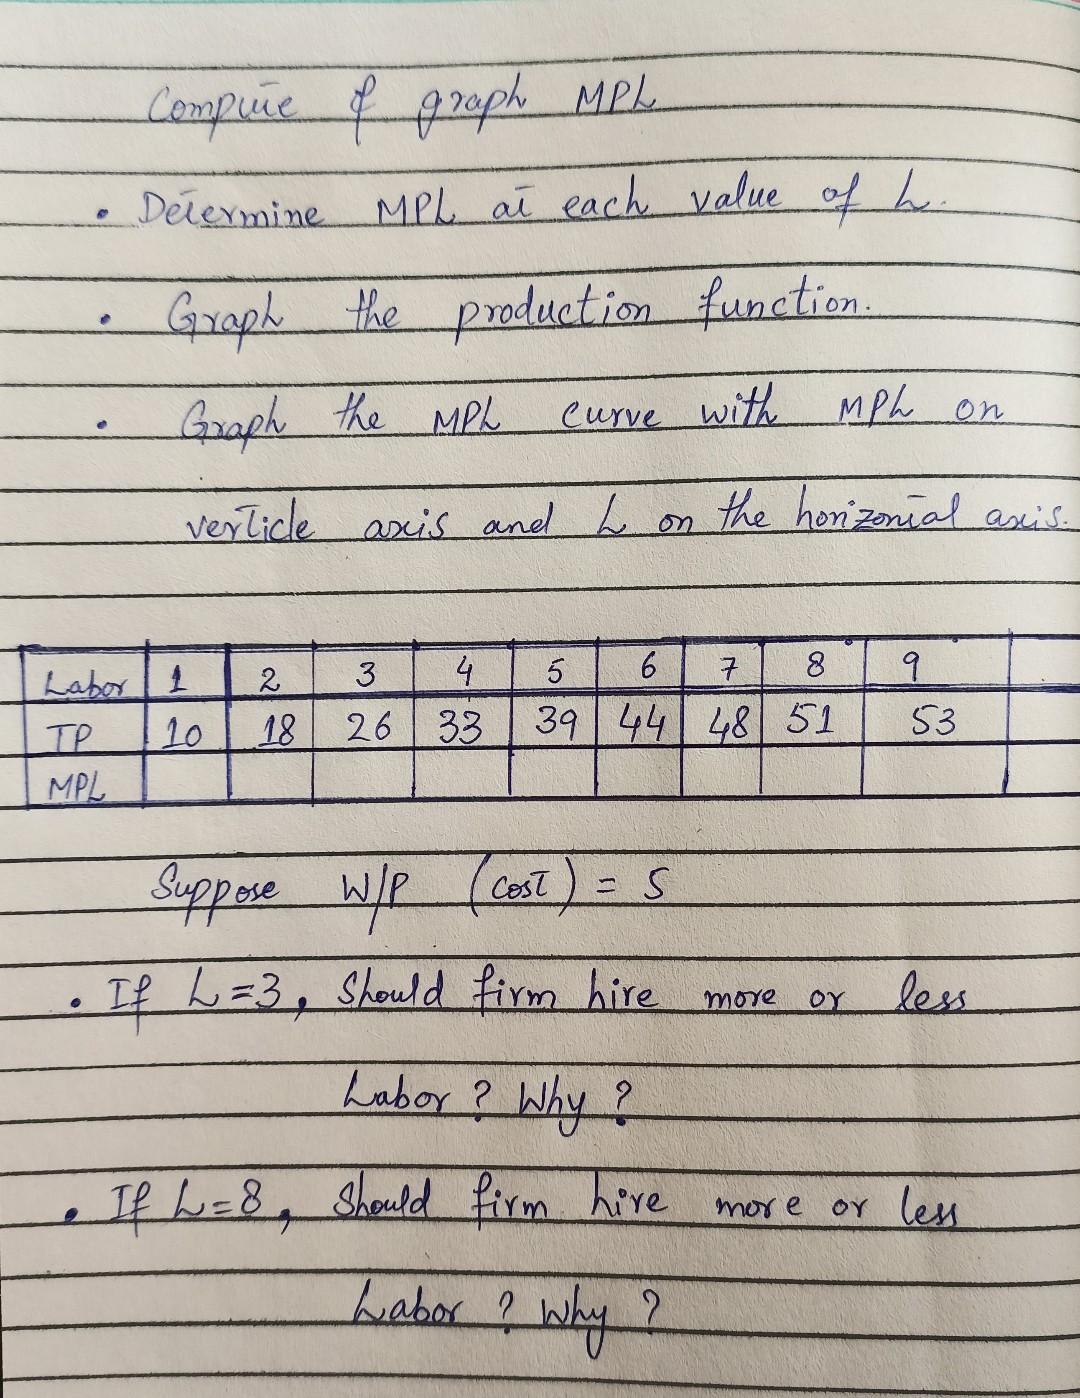 Compute & graph MPL
• Determine MPL at each value of L.
• Graph the production function.
• Graph the MPL curve with MPL on
verticle axis and L on the horizontal axis.
Labor 1 2 3 4 5 6 7 8 9
TP 10 18 26 33 39 44 48 51 53
MPL
Suppose W/P (cost) = 5
• If L=3, Should firm hire more or less
Labor ? Why ?
• If L=8, Should firm hire more or less
Labor ? Why ?